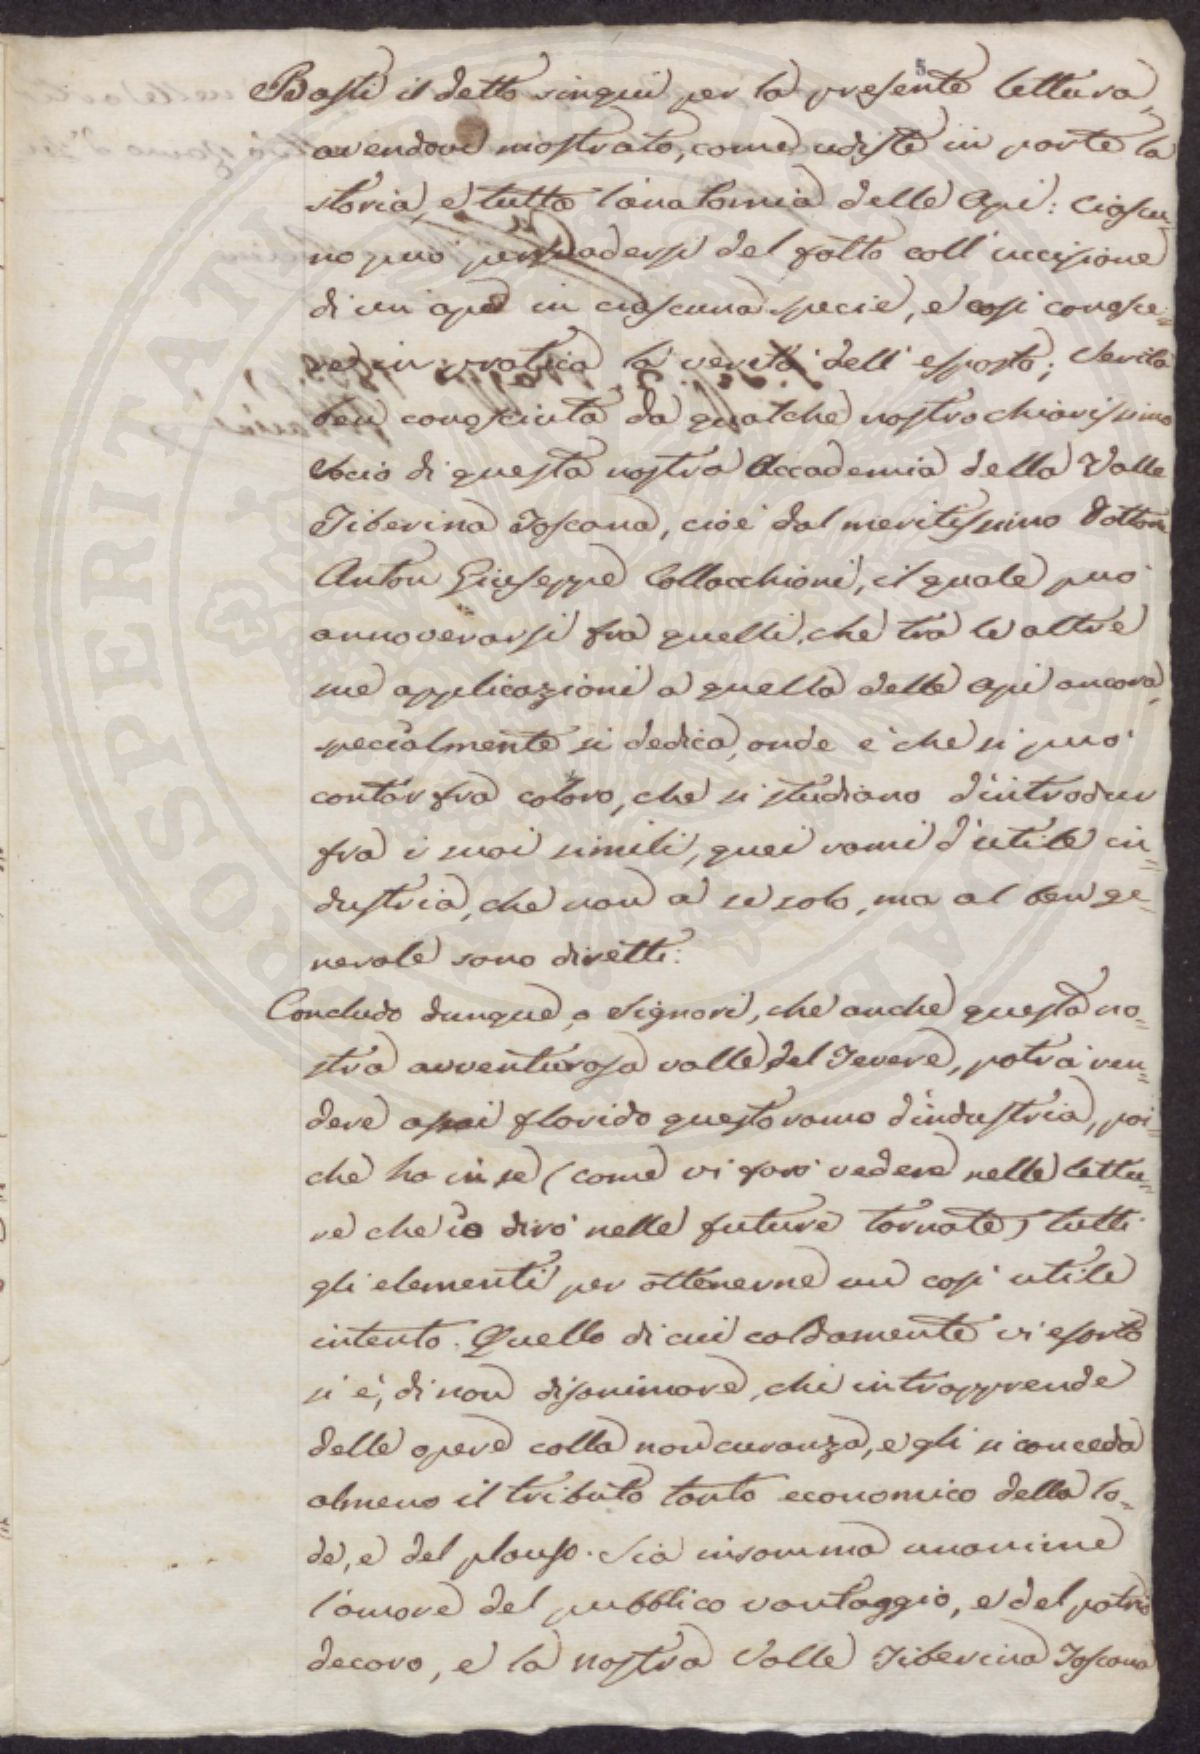 5
Basti il detto sinquì per la presente lettura,
avendovi mostrato, come udiste in parte la
storia, e tutta l'anatomia delle Api: ciascu=
no può persuadersi del fatto coll'uccisione
di un ape in ciascuna specie, e così conosce=
re in pratica la verità dell'esposto; Verità
ben conosciuta da qualche nostro chiarissimo
Socio di questa nostra Accademia della Valle
Tiberina Toscana, cioè dal meritissimo Dottore
Anton Giuseppe Collacchioni, il quale può
annoverarsi fra quelli, che tra le altre
sue applicazioni a quella delle api ancora,
specialmente si dedica, onde è che si può
contar fra coloro, che si studiano d'introdur
fra i suoi simili, quei rami d'utile in=
dustria, che non a se solo, ma al ben ge=
nerale sono diretti.
Concludo dunque, o Signori, che anche questa no=
stra avventurosa valle del Tevere, potrà ren=
dere assai florido questo ramo d'industria, poi=
chè ha in se (come vi farò vedere nelle lettu=
re che io dirò nelle future tornate) tutti
gli elementi per ottenerne un così utile
intento. Quello di cui caldamente vi esorto
si è, di non disanimare, chi intrapprende
delle opere colla noncuranza, e gli si conceda
almeno il tributo tanto economico della lo=
de, e del plauso. Sia insomma unanime
l'amore del pubblico vantaggio, e del patrio
decoro, e la nostra Valle Tiberina Toscana
PROSPERITATI PUBLICAE